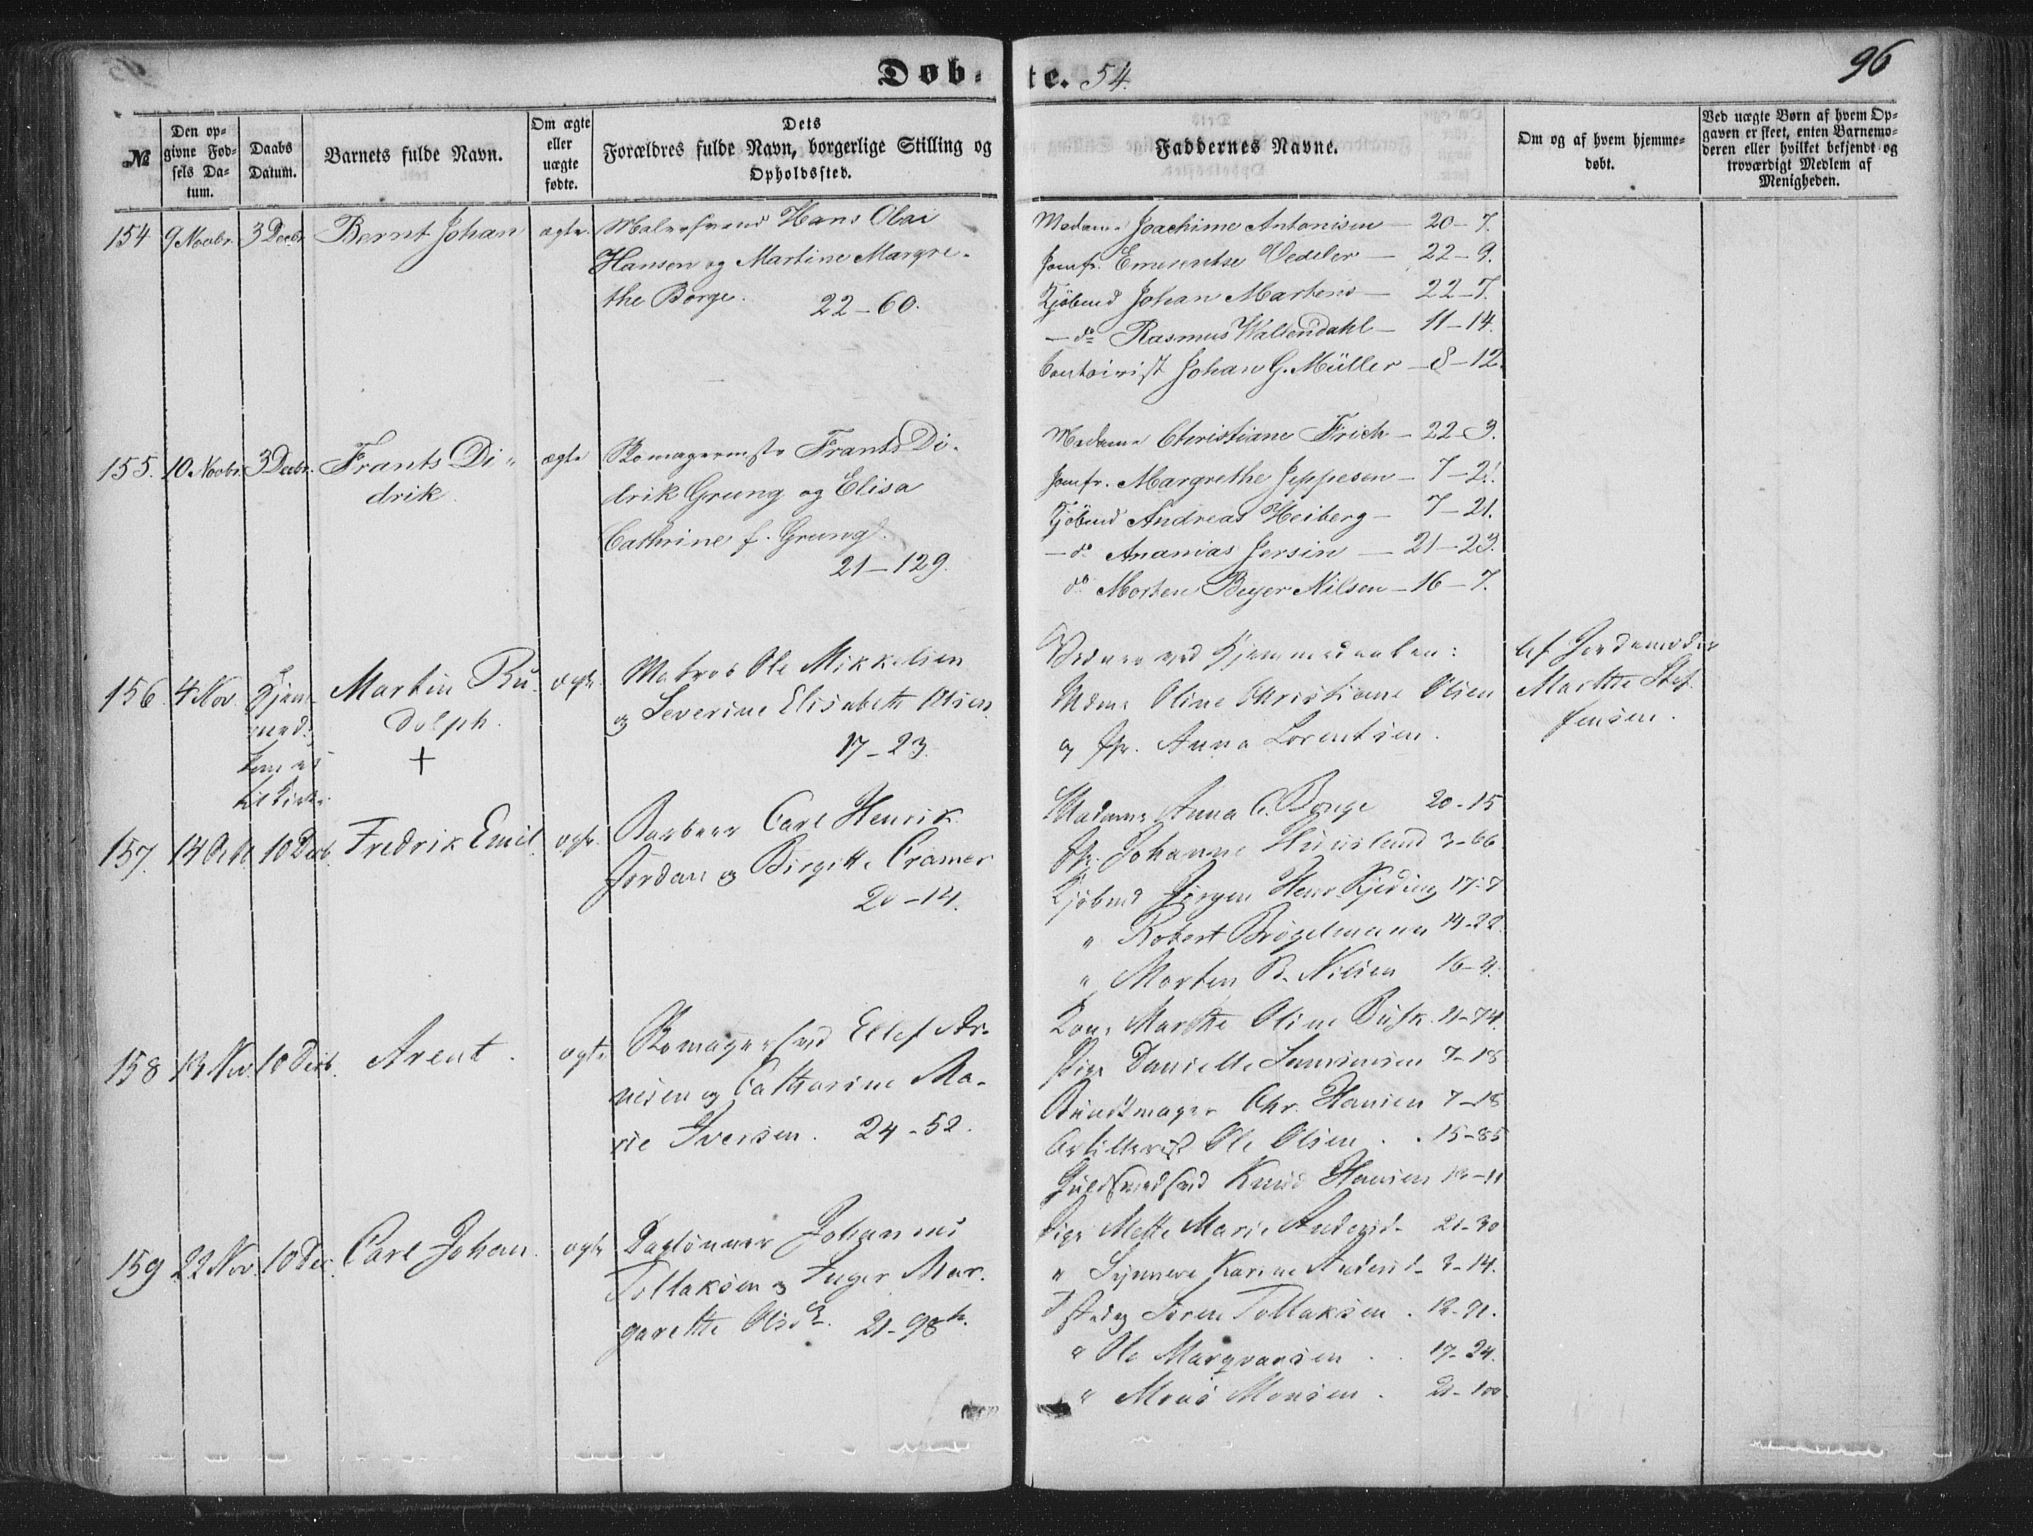 Døb-te. 54.
96
№
Den opgivne Fødsels Datum.
Daabs Datum.
Barnets fulde Navn.
Om ægte eller uægte fødte.
Dets Forældres fulde Navn, borgerlige Stilling og Opholdssted.
Faddernes Navne.
Om og af hvem hjemmedøbt.
Ved uægte Børn af hvem Opgaven er skeet, enten Barnemoderen eller hvilket bekjendt og troværdigt Medlem af Menigheden.
154 9 Novbr. 3 Decbr Bernt Johan ægte. Malersvend Hans Olai
Hansen og Martine Margre-
the Borge. 22-60.
Madame Joachime Antonisen - 20-7.
Jomfr. Emerentse Vedeler - 22-9.
Kjøbmd Johan Martens - 22-7.
- do Rasmus Wallendahl - 11-14.
Contoirist Johan G. Müller - 8-12.
155. 10 Novbr. 3 Decbr. Frants Di-
drik.
ægte Skomagermstr Frants Di-
drik Grung og Elisa
Cathrine f. Grung.
21-129.
Madame Christiane Frich - 22-3.
Jomfr. Margrethe Jeppesen - 7-21.
Kjøbmd Andreas Heiberg - 7-21.
- do Ananias Jersin - 21-23.
do Morten Beyer Nilsen - 16-7.
156. 4 Nov. Hjem-
med.
Kom ei
til Kirke
Martin Ru-
dolph.
+
ægte. Matros Ole Mikkelsen
og Severine Elisabeth Olsen.
17-23.
Vidner ved Hjemmedaaben:
Mdme Oline Christiane Olsen
og Jfr. Anna Lorentsen.
Af Jordemoder
Marthe Stef-
fensen.
157. 14 Octb. 10 Decb. Fredrik Emil. ægte. Barbeer Carl Henrik
Jordan og Birgitte Cramer
20-14.
Madame Anna C. Borge 20-15
Jfr. Johanne Huusland 3-66.
Kjøbmd Jørgen Henr. Kjeding 17-7
" Robert Brøgelmann 14-22.
" Morten B. Nilsen 16-4.
158 13 Nov. 10 Decb. Arent. ægte Skomagersvd Ellef Ar-
nesen og Catharine Ma-
rie Iversen. 24-52.
Kone Marthe Oline Busk. 21-74.
Pige Danielle Lauersen 7-18
Buntmager Chr. Hansen 7-18
Artillerist Ole Olsen. . 15-85
Guldsmedsvd Knud Hansen 12-11
159 22 Nov. 10 Dec. Carl Johan. ægte Daglønner Johannes
Tollaksen og Inger Mar-
garethe Olsdr. 21-98b.
Pige Mette Marie Andersd. 21-30
" Synneve Karine Andersd. 3-14.
Søren Tollaksen. 12-91.
" Ole Marqvarsen . . 17-24.
" Mons Monsen. 21-100